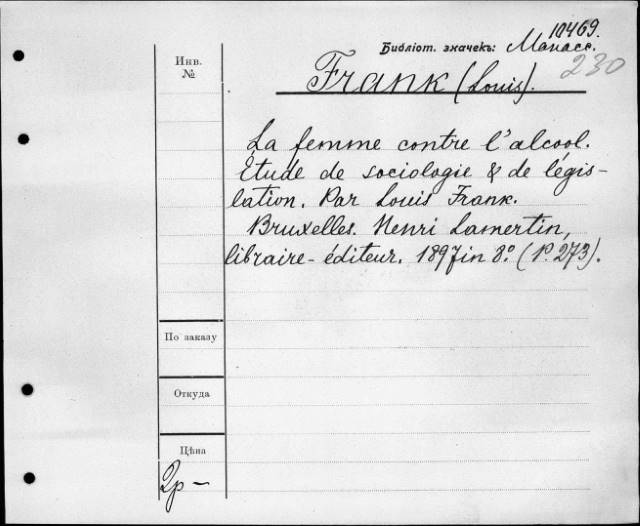 10469.
Библіот. значекъ: Манасс.
230
Инв.
№
Frank (Louis).
La femme contre l'alcool.
Étude de sociologie & de légis-
lation. Par Louis Frank.
Bruxelles. Henri Lamertin,
libraire-éditeur. 1897 in 8° (P. 273).
По заказу
Откуда
Цѣна
2р —